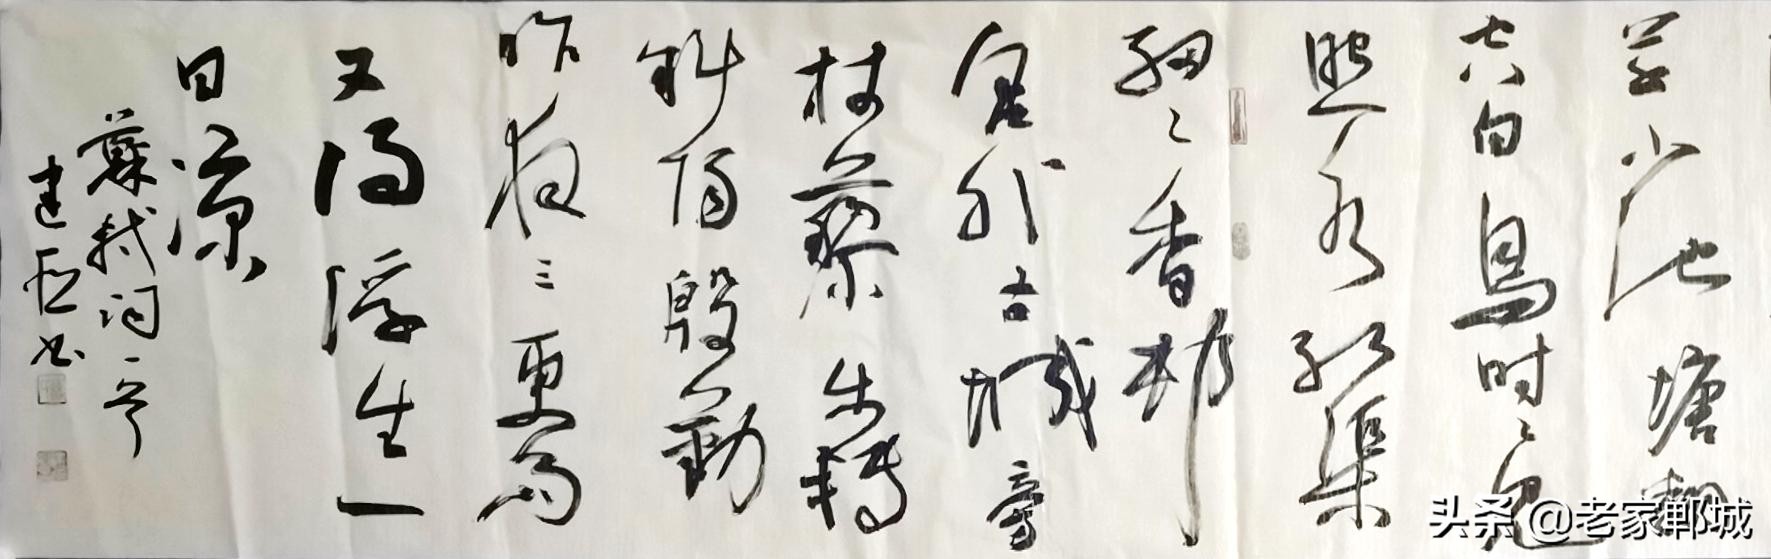 草小池塘翻
空白鸟时时见
照水红蕖
细细香村
舍外古城旁
杖藜步转
斜阳殷勤
昨夜三更雨
又得浮生一
日凉
苏轼词一首
建
书
头条 @老家郸城